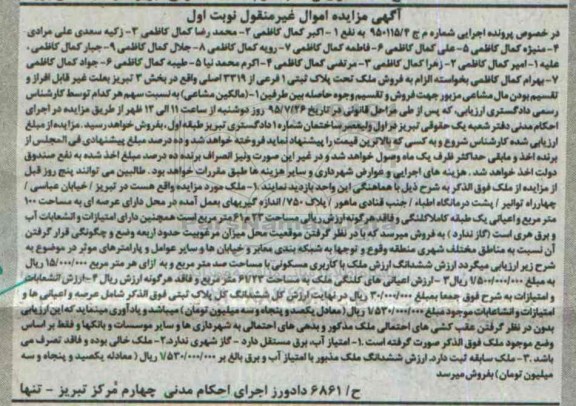 آگهی مزایده اموال غیرمنقول نوبت اول
در خصوص پرونده اجرایی شماره م ج ۹۵۰۱۱۵/۴ به نفع ۱- اکبر کمال کاظمی ۲- محمد رضا کمال کاظمی ۳- زکیه سعدی علی مرادی
۴- منیژه کمال کاظمی ۵- علی کمال کاظمی ۶- فاطمه کمال کاظمی ۷- رویه کمال کاظمی ۸- جلال کمال کاظمی ۹- جبار کمال کاظمی .
علیه ۱- امیر کمال کاظمی ۲- زهرا کمال کاظمی ۳- مرتضی کمال کاظمی ۴- اکرم محمد نیا ۵- طیبه کمال کاظمی ۶- جواد کمال کاظمی
۷- بهرام کمال کاظمی بخواسته الزام به فروش ملک تحت پلاک ثبتی ۱ فرعی از ۳۳۱۹ اصلی واقع در بخش ۳ تبریز بعلت غیر قابل افراز و
تقسیم بودن مال مشاعی مزبور جهت فروش و تقسیم وجوه حاصله بین طرفین ۱-(مالکین مشاعی) به نسبت سهم هر کدام توسط کارشناس
رسمی دادگستری ارزیابی، که پس از طی مراحل قانونی در تاریخ ۹۵/۷/۲۶ روز دوشنبه از ساعت ۱۱ الی ۱۲ ظهر از طریق مزایده در اجرای
احکام مدنی دفتر شعبه یک حقوقی تبریز در اول ولیعصر ساختمان شماره ۱ دادگستری تبریز طبقه اول، بفروش خواهد رسید . مزایده از مبلغ
ارزیابی شده کارشناس شروع و به کسی که بالاترین قیمت را پیشنهاد نماید فروخته خواهد شد و ده درصد مبلغ پیشنهادی فی المجلس از
برنده اخذ و مابقی حداکثر ظرف یک ماه وصول خواهد شد و در غیر این صورت ونیز انصراف برنده ده درصد مبلغ اخذ شده به نفع صندوق
دولت اخذ خواهد شد . هزینه های اجرایی و عوارض شهرداری و سایر هزینه ها طبق مقررات خواهد بود. طالبین می توانند پنج روز قبل
از مزایده از ملک فوق الذکر به شرح ذیل با هماهنگی این واحد بازدید نمایند .۱- ملک مورد مزایده واقع هست در تبریز / خیابان عباسی /
چهارراه لوانیر / پشت درمانگاه اطباء / جنب قنادی ماهور / پلاک ۷۵۰/ اندازه گیریهای بعمل آمده در محل دارای عرصه ای به مساحت ۱۰۰
متر مربع و اعیانی یک طبقه کاملا کلنگی و فاقد هرگونه ارزش ریالی مساحت ۲۳م۶۱ متر مربع است همچنین دارای امتیازات و انشعابات آب
و برق هری است (گاز ندارد ) به فروش میرسد که با در نظر گرفتن موقعیت محل میزان مرغوبیت حدود اربعه وضع و چگونگی قرار گرفتن
آن نسبت به مناطق مختلف شهری منطقه وقوع و توجها به شبکه بندی معابر و خیابان ها و سایر عوامل و پارامترهای موثر در موضوع به
شرح زیر ارزیابی میگردد ارزش ششدانگ ارزش ملک با کاربری مسکونی با مساحت صد متر مربع و به ازای هر متر مربع ۱۵/۰۰۰/۰۰۰ ریال
به مبلغ ۱/۵۰۰/۰۰۰/۰۰۰ ریال ۳- ارزش اعیانی های کلنگی ملک به مساحت ۶۱/۲۳ متر مربع و فاقد هرگونه ارزش ریال ۴- ارزش انشعابات
و امتیازات به شرح فوق جمعا بمبلغ ۳۰/۰۰۰/۰۰۰ ریال در نهایت ارزش کل ششدانگ کل پلاک ثبتی فوق الذکر شامل عرصه و اعیانی ها و
امتیازات وانشعابات موجود مبلغ ۱/۵۳۰/۰۰۰/۰۰۰ ریال ( معادل یکصد و پنجاه و سه میلیون تومان ) میباشد و یادآوری مینماید که این ارزیابی
بدون در نظر گرفتن عقب کشی های احتمالی ملک مذکور و بدهی های احتمالی به شهرداری ها و سایر موسسات و بانکها و فقط بر اساس
وضع موجود ملک فوق الذکر صورت گرفته است .۱- امتیاز آب، برق مستقل دارد - گاز شهری ندارد.۲- ملک خالی بوده و فاقد تصرف می
باشد .۳- ملک سابقه ثبت دارد. ارزش ششدانگ ملک مذبور با امتیاز آب و برق بالغ بر ۱/۵۳۰/۰۰۰/۰۰۰ ریال ( معادله یکصید و پنجاه و سه
میلیون تومان ) بفروش میرسد
ح/ ۶۸۶۱ دادورز اجرای احکام مدنی چهارم مرکز تبریز - تنها